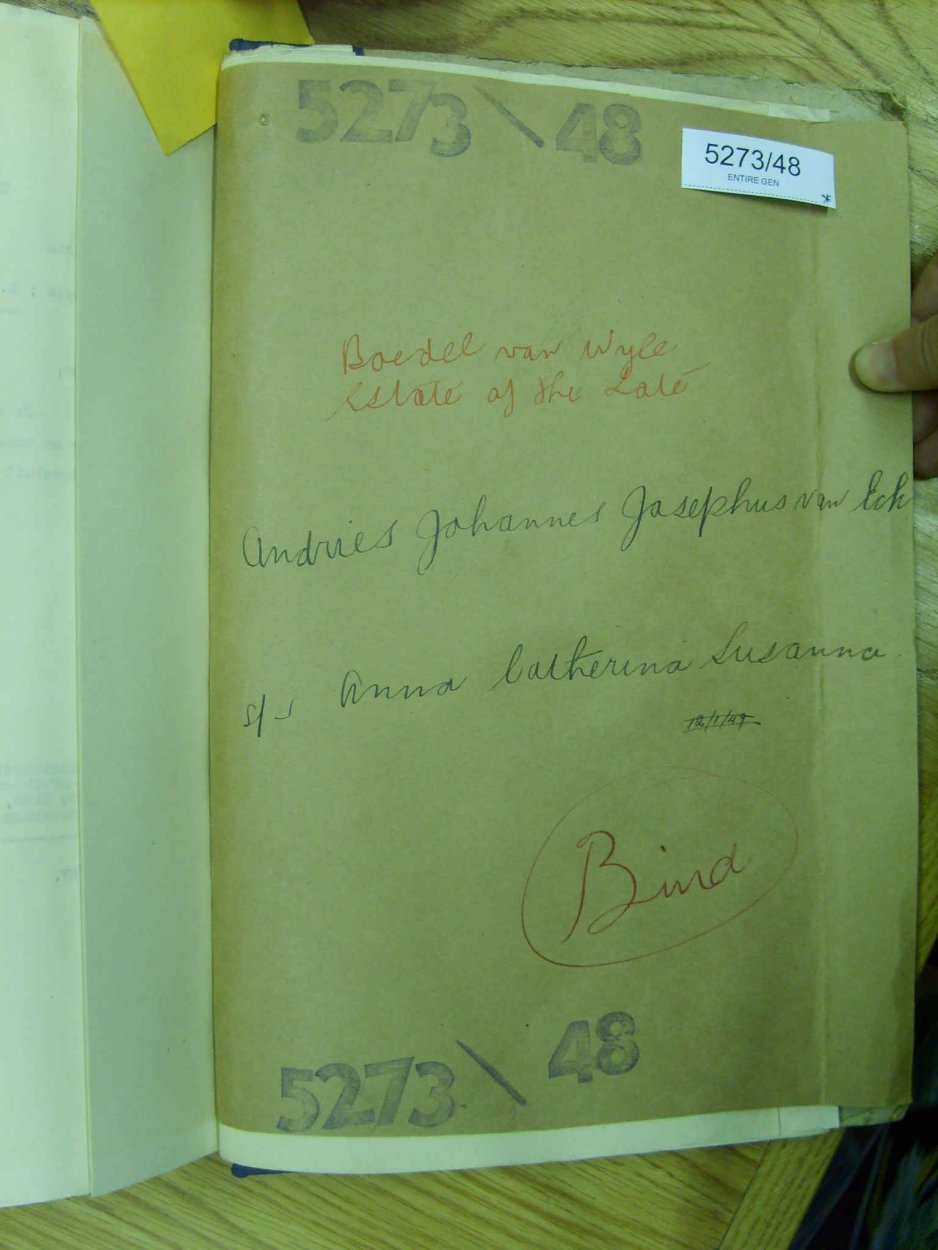 5273\48
5273/48
ENTIRE GEN
*
Boedel van Wyle
Estate of the Late
Andries Johannes Josephus van Eck
s/s Anna Catherina Susanna
12/1/49
Bind
5273\48